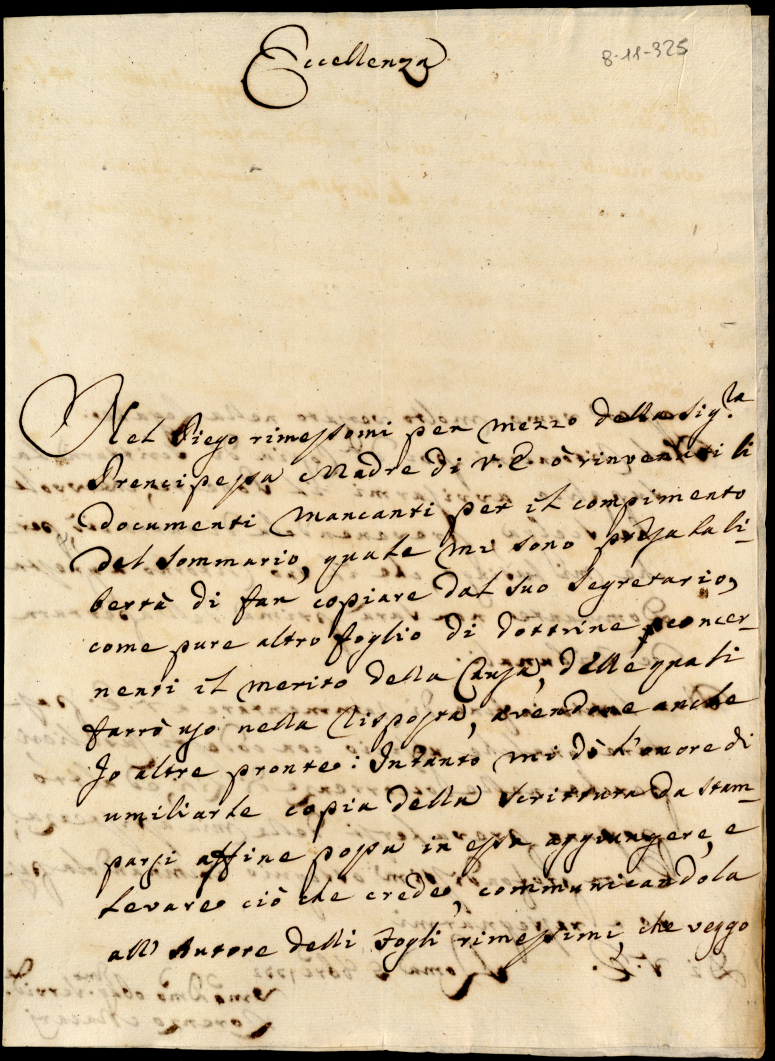 Eccellenza
8-11-325
Nel Piego rimessomi per mezzo della Sig.ra
Prencipessa Madre di V. E. ò rinvenuti li
documenti mancanti per il compimento
del sommario, quale mi sono presa la li-
bertà di far copiare dal suo Segretario,
come pure altro foglio di dottrine concer-
nenti il merito della Causa, delle quali
farrò uso nella Risposta, avendone anche
Io altre pronte: Intanto mi dò l'onore di
umiliarle copia della Scrittura da stam-
parsi affine possa in essa aggiungere, e
levare ciò che crede, communicandola
all' Autore delli Fogli rimessimi, che veggo